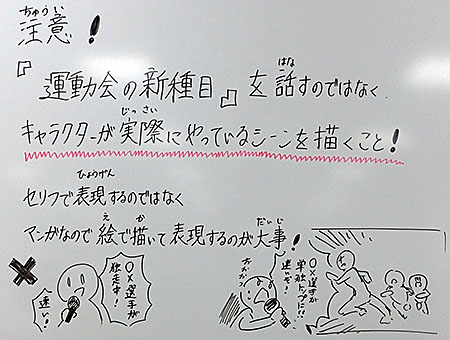 ちゅうい
注意!
『運動会の新種目』を話すのではなく
はな
じっさい
キャラクターが実際にやっているシーンを描くこと!
ひょうげん
セリフで表現するのではなく
え か だいじ
マンガなので絵で描いて表現するのが大事!
〇×選手が
独走中!
速い!
おおおっ
〇×選手が
単独トップに!!
速いぞ!